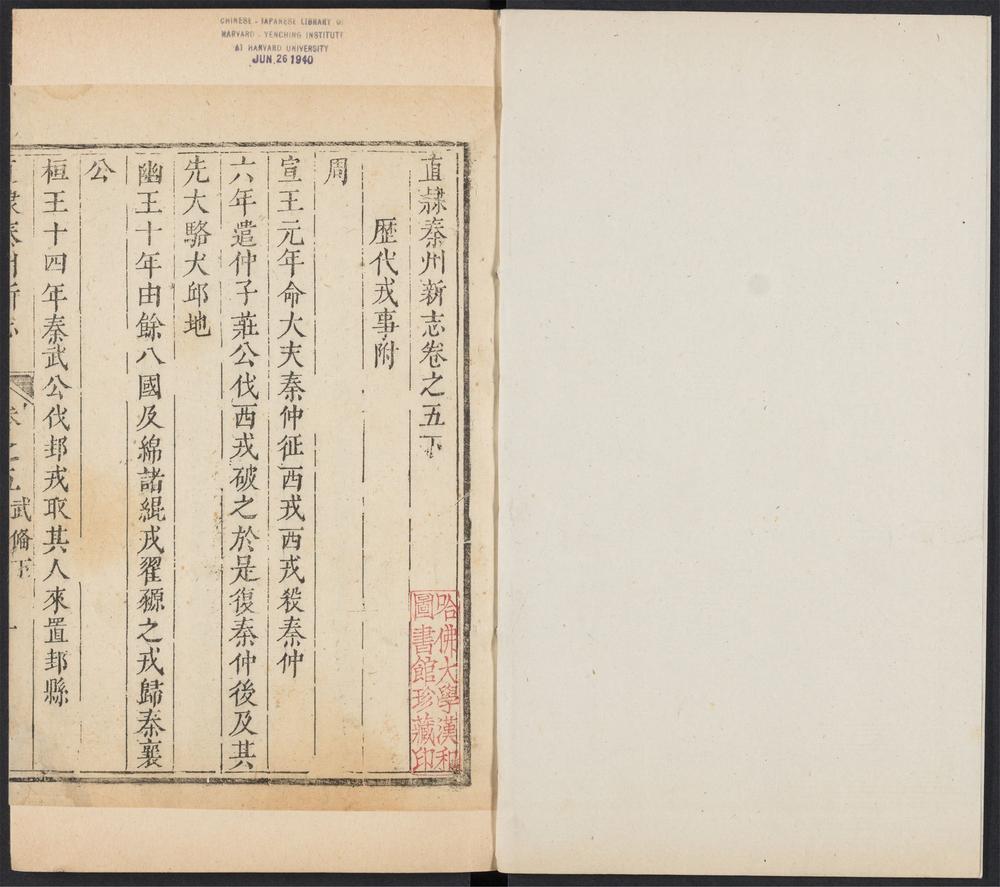 CHINESE - JAPANESE LIBRARY OF
HARVARD - YENCHING INSTITUTE
AT HARVARD UNIVERSITY
JUN 26 1940
直隷秦州新志卷之五下
歴代戎事附
周
宣王元年命大夫秦仲征西戎西戎殺秦仲
六年遣仲子莊公伐西戎破之於是復秦仲後及其
先大駱犬邱地
幽王十年由餘八國及綿諸緄戎翟獂之戎歸秦襄
公
桓王十四年秦武公伐邽戎取其人來置邽縣
卷之五 武備下 一
哈佛大學漢和
圖書館珍藏印